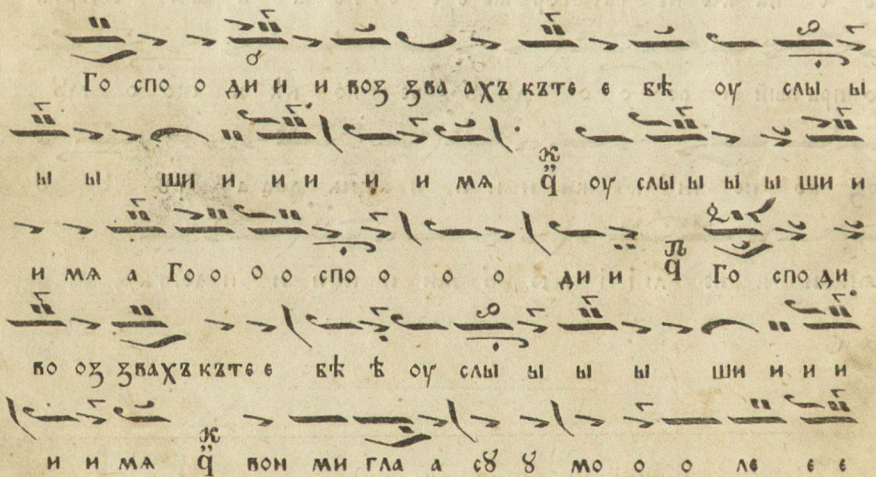 Го спо о ди и и воз ꙁва ахъ къте е бѣ оу слы ы
ы ы ши и и и и и мѧ к҃ ч҃ оу слы ы ы ы ши и
и мѧ а Го о о о спо о о о ди и п҃ ч҃ Го спо ди
во оз ꙁвахъ къте е бѣ ѣ оу слы ы ы ы ши и и
и и мѧ к҃ ч҃ вон ми гла а сꙋ ꙋ мо о о ле е е